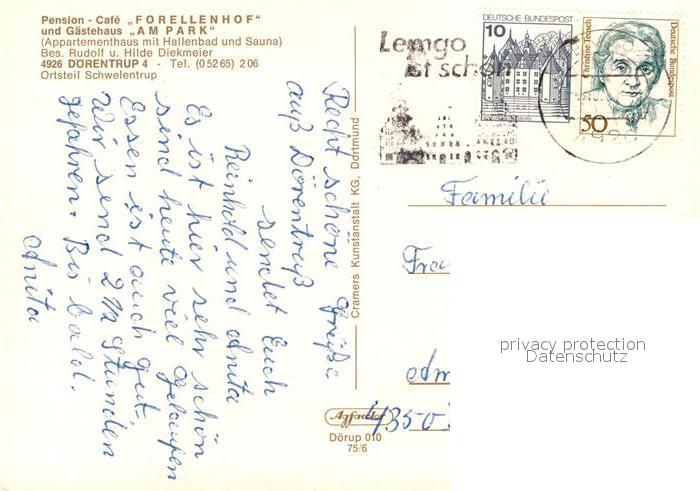 Pension - Café „FORELLENHOF“
und Gästehaus „AM PARK“
(Appartementhaus mit Hallenbad und Sauna)
Bes. Rudolf u. Hilde Diekmeier
4926 DÖRENTRUP 4 - Tel. (05265) 206
Ortsteil Schwelentrup
Lemgo
ist schön
10
DEUTSCHE BUNDESPOST
Christine Teusch
Deutsche Bundespost
50
Recht schöne Grüße
auß Dörentruß
sendet Euch
Reinhold und Anita
Es ist hier sehr schön
sind heute viel gelaufen
Essen ist auch gut.
Wir send 2½ Stunden
gefahren. Bis bald.
Anita
Cramers Kunstanstalt KG, Dortmund
Familie
Fra
Am
4350
Dörup 010
75/6
privacy protection
Datenschutz